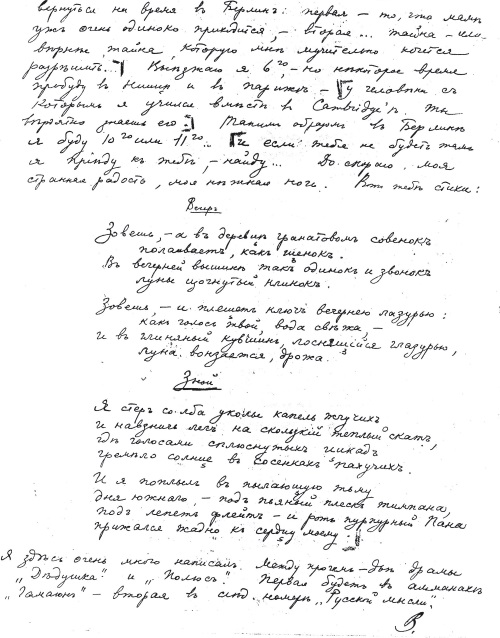 вернуться на время в Берлинъ: первая – то, что мамѣ
ужъ очень одиноко приходится, – вторая... тайна – или
вѣрнѣе тайна которую мнѣ мучительно хочется
разрѣшить... Выѣзжаю я 6го, – но нѣкоторое время
пробуду въ Ниццѣ и въ Парижѣ – у человѣка съ
которымъ я учился вмѣстѣ въ Cambridge'ѣ. Ты
вѣроятно знаешь его. Такимъ образомъ въ Берлинѣ
я буду 10го или 11го.. И если тебя не будетъ тамъ
я приѣду къ тебѣ, – найду... До скораго моя
странная радость, моя нѣжная ночь. Вотъ тебѣ стихи:
Вечеръ
Зовешь, – а въ деревцѣ гранатовомъ совенокъ
полаиваетъ, какъ щенокъ.
Въ вечерней вышинѣ такъ одинокъ и звонокъ
луны изогнутый клинокъ.
Зовешь, – и плещетъ ключъ вечернею лазурью:
какъ голосъ твой, вода свѣжа, –
и въ глиняный кувшинъ, лоснящійся глазурью,
луна вонзается, дрожа.
Зной
Я стеръ со лба укольы капель жгучихъ
и навзничь легъ на скользкій теплый скатъ,
гдѣ голосами сплюснутыхъ цикадъ
гремѣло солнце въ сосенкахъ пахучихъ.
И я поплылъ въ пылающую тьму
дня южнаго, – подъ пьяный плескъ тимпана,
подъ лепетъ флейтъ – и ротъ пурпурный Пана
прижался жадно къ сердцу моему.
Я здѣсь очень много написалъ. Между прочимъ – двѣ драмы
„Дѣдушка" и „Полюсъ". Первая будетъ въ альманахѣ
„Гамаюнъ" – вторая въ слѣд. номерѣ „Русской Мысли".
В.